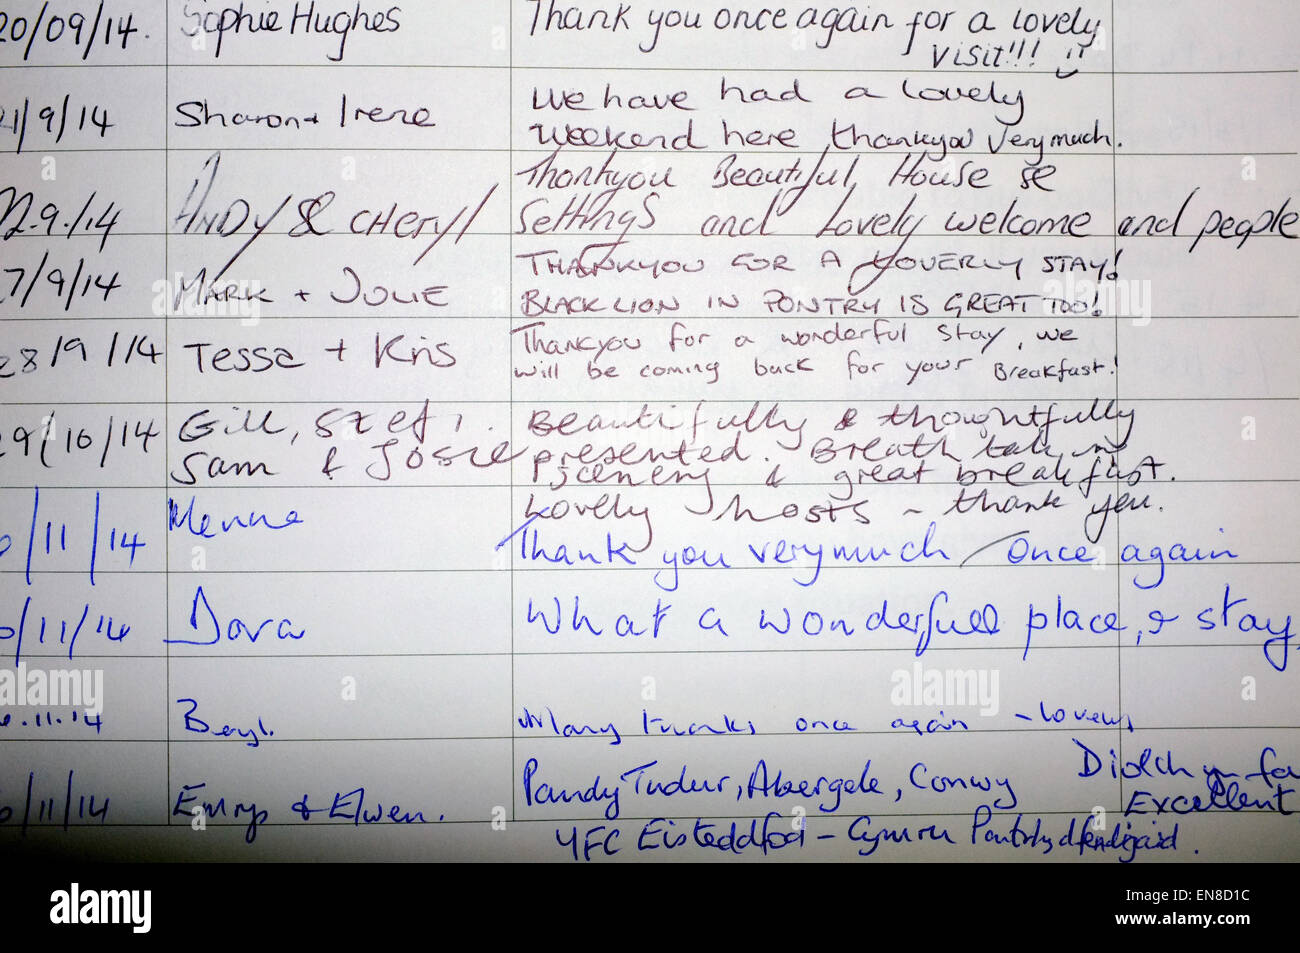 20/09/14. Sophie Hughes Thank you once again for a lovely
visit!!!
21/9/14 Sharon + Irene We have had a lovely
weekend here, thankyou very much.
22.9./14 ANDY & CHERYl Thankyou Beautiful House se
Settings and Lovely welcome and people
7/9/14 MARK + JULIE THANKYOU FOR A LOVERLY STAY!
BLACK LION IN PONTRY IS GREAT TOO!
28/9/14 Tessa + Kris Thankyou for a wonderful stay, we
will be coming back for your Breakfast!
29/10/14 Gill, Stef, Beautifully & thoughtfully
Sam & Josie presented. Breath takin
scenery & great breakfast.
Lovely hosts ~ thank you.
/11/14 Menna Thank you very much once again
/11/14 Dora What a wonderful place, & stay.
.11.14 Beryl. Many thanks once again - lovely
/11/14 Emrys & Elwen. Pandy Tudur, Abergele, Conwy Diolch yn fa
Excellent
YFC Eisteddfod - Cymru Pontrhydfendigaid.
alamy
a
alamy stock photo
EN8D1C
www.alamy.com